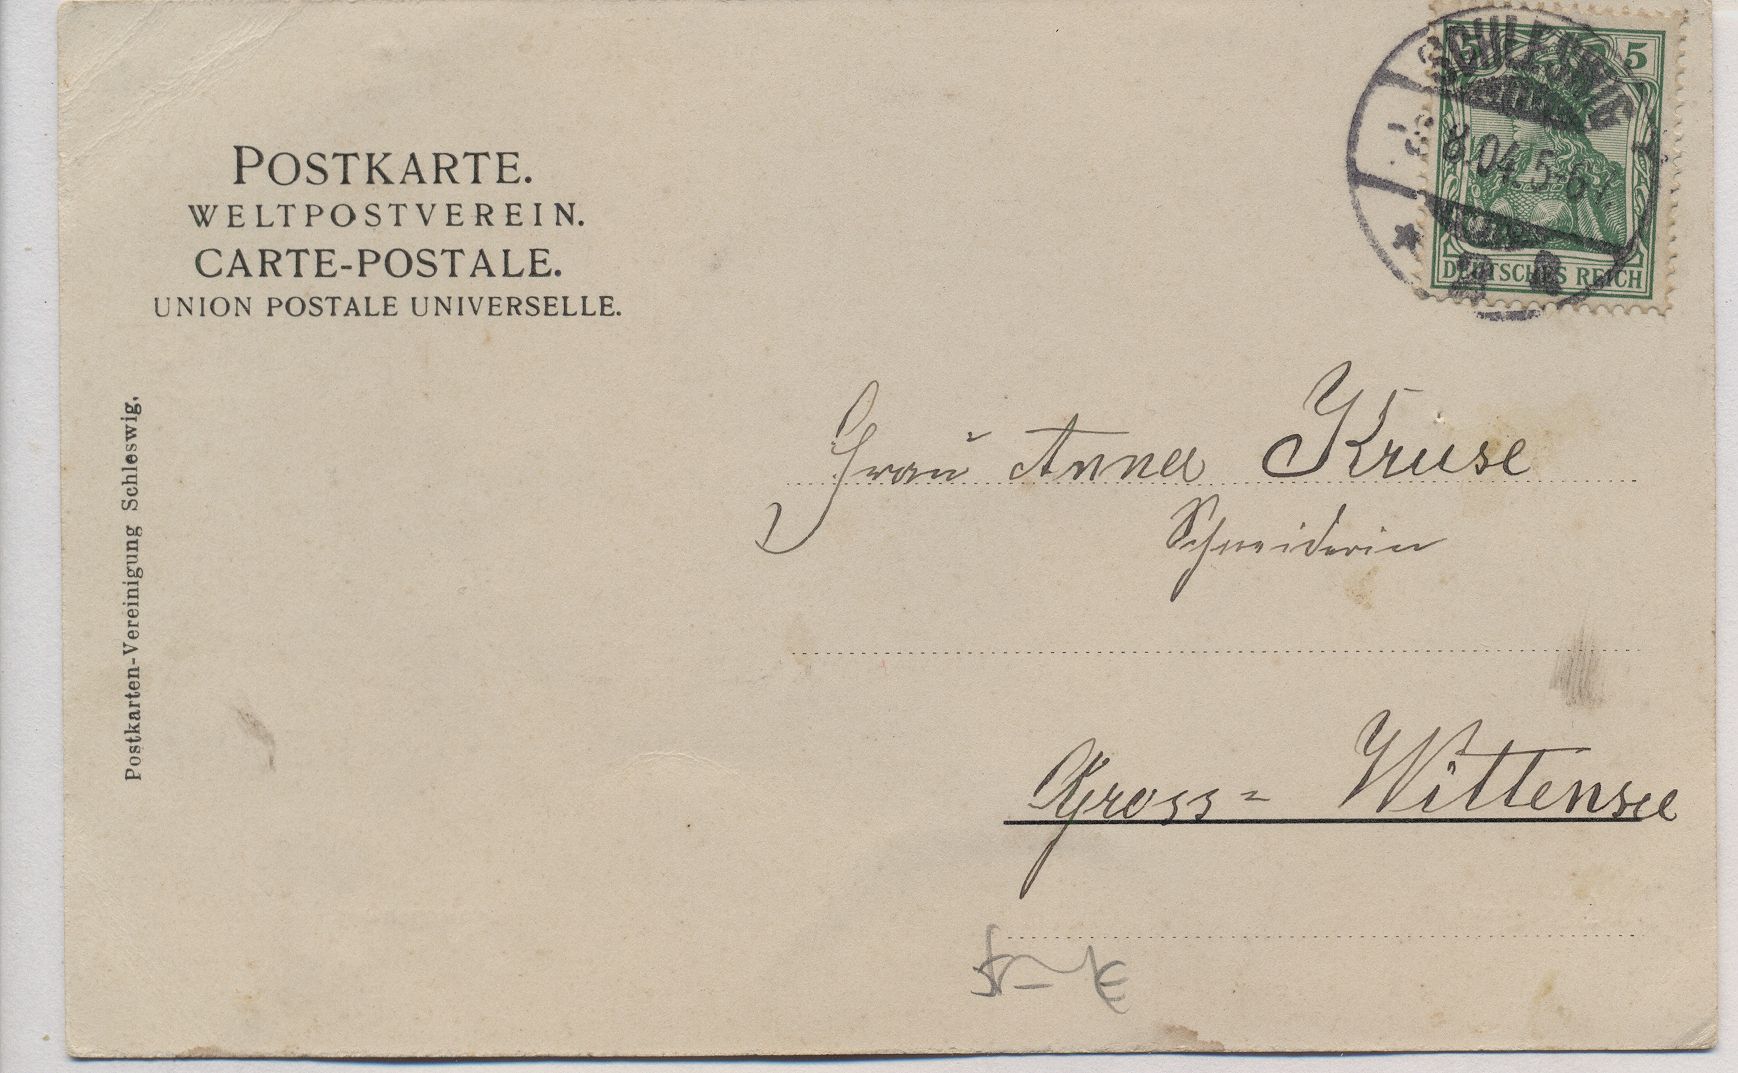 POSTKARTE.
WELTPOSTVEREIN.
CARTE-POSTALE.
UNION POSTALE UNIVERSELLE.
Postkarten-Vereinigung Schleswig.
5 5
SCHLESWIG
8.04.5-6
DEUTSCHES REICH
Frau Anna Kruse
Schneiderin
Gross= Wittensee
5 – €